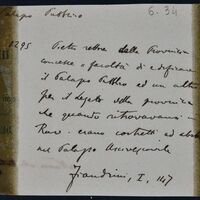 Palazzo Pubblico 6.34
1295 Pietro rettore della Provincia
concesse facoltà di edificare
il Palazzo Pubblico ed un altro
per il Legato della provincia
che quando ritrovavansi in
Rav. erano costretti ad
nel Palazzo Arcivescovile
I, 147